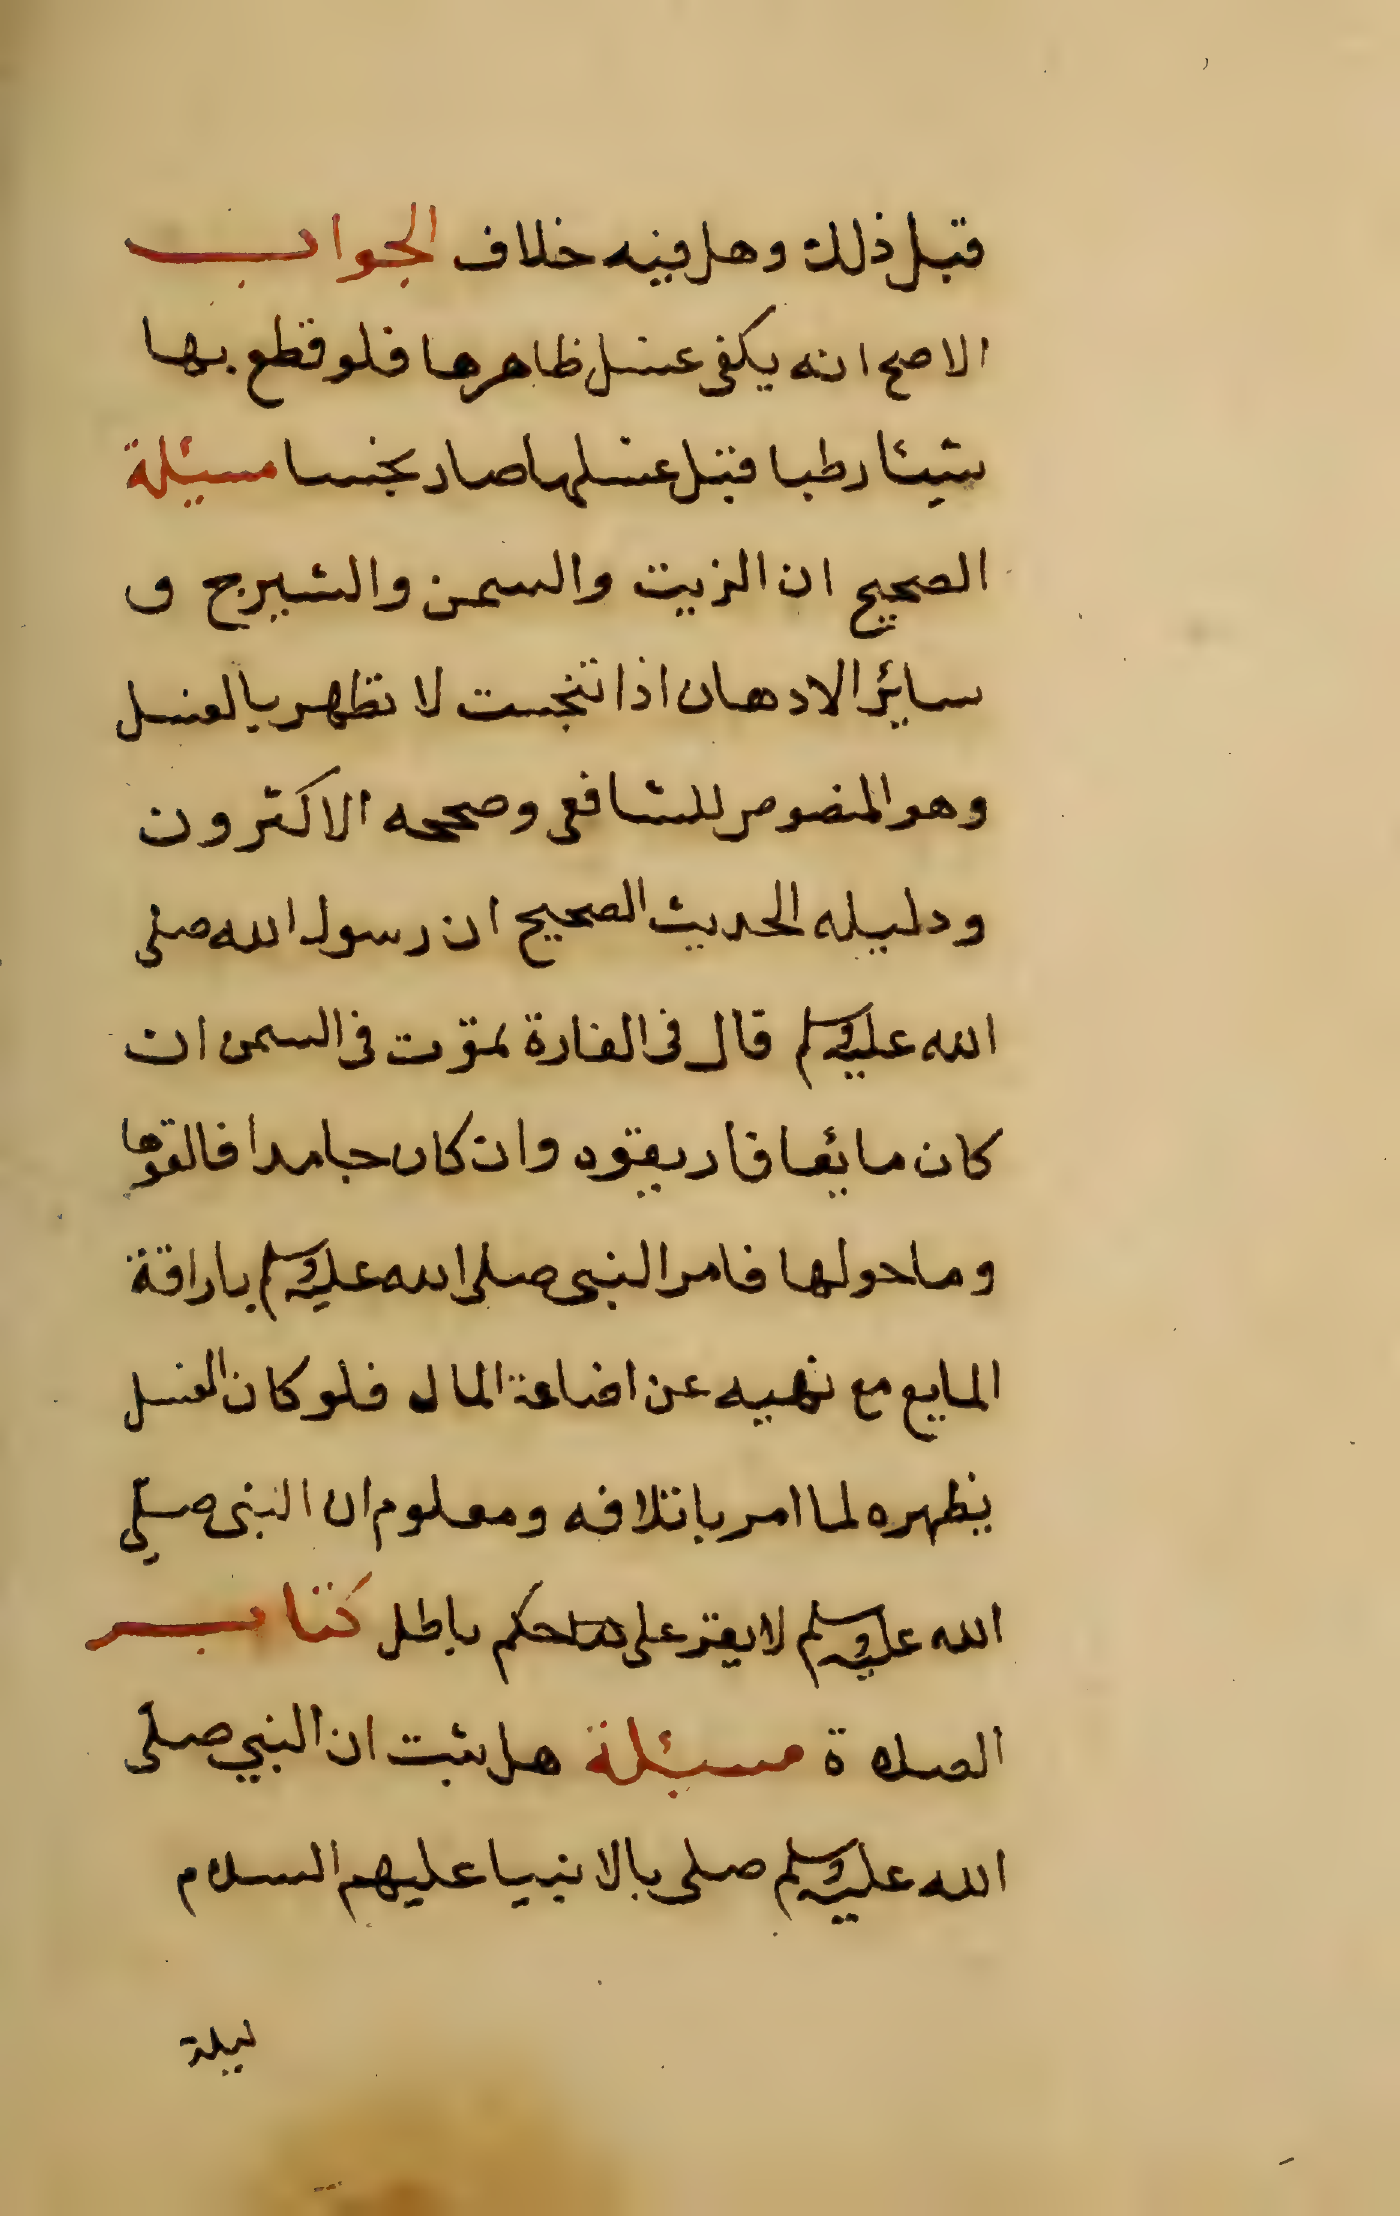 قبل ذلك وهل فيه خلاف الجواب
الاصح انه يكفى غسل ظاهرها فلو قطع بها
شيئا رطبا قبل غسلها صار نجسا مسئلة
الصحيح ان الزيت والسمن والشيرج و
سائر الادهان اذا تنجست لا تطهر بالغسل
وهو المنصوص للشافعى وصححه الاكثرون
ودليله الحديث الصحيح ان رسول الله صلى
الله عليه وسلم قال فى الفارة تموت فى السمن ان
كان مائعا فاريقوه وان كان جامدا فالقوها
وما حولها فامر النبى صلى الله عليه وسلم باراقة
المايع مع نهيه عن اضاعة المال فلو كان الغسل
يطهره لما امر باتلافه ومعلوم ان النبى صلى
الله عليه وسلم لا يقر على حكم باطل كتاب
الصلاة مسئلة هل ثبت ان النبي صلى
الله عليه وسلم صلى بالانبيا عليهم السلام
ليلة